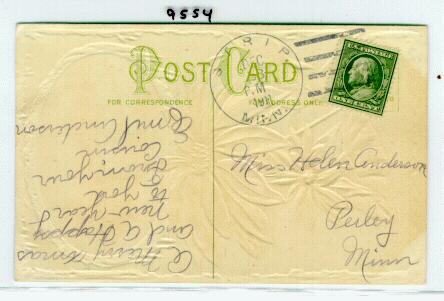 9554
POST CARD
FOR CORRESPONDENCE
FOR ADDRESS ONLY
RIP
DEC
P.M.
MINN.
U.S. POSTAGE
ONE CENT
Miss Helen Anderson
Perley
Minn
A Merry Xmas
and a Happy
new-year
to you
From your
cousin
Emil Anderson